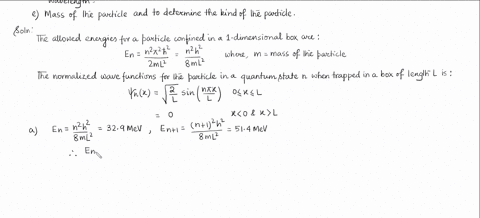 wavelength.
c) Mass of the particle and to determine the kind of the particle.
Soln:
The allowed energies for a particle confined in a 1-dimensional box are:
En = n²π²ħ²/2mL² = n²h²/8mL² where, m = mass of the particle
The normalized wave functions for the particle in a quantum state n when trapped in a box of length L is:
ψn(x) = √(2/L) sin(nπx/L) 0≤x≤L
= 0 x<0 & x>L
a) En = n²h²/8mL² = 32.9 MeV , En+1 = (n+1)²h²/8mL² = 51.4 MeV
∴ En